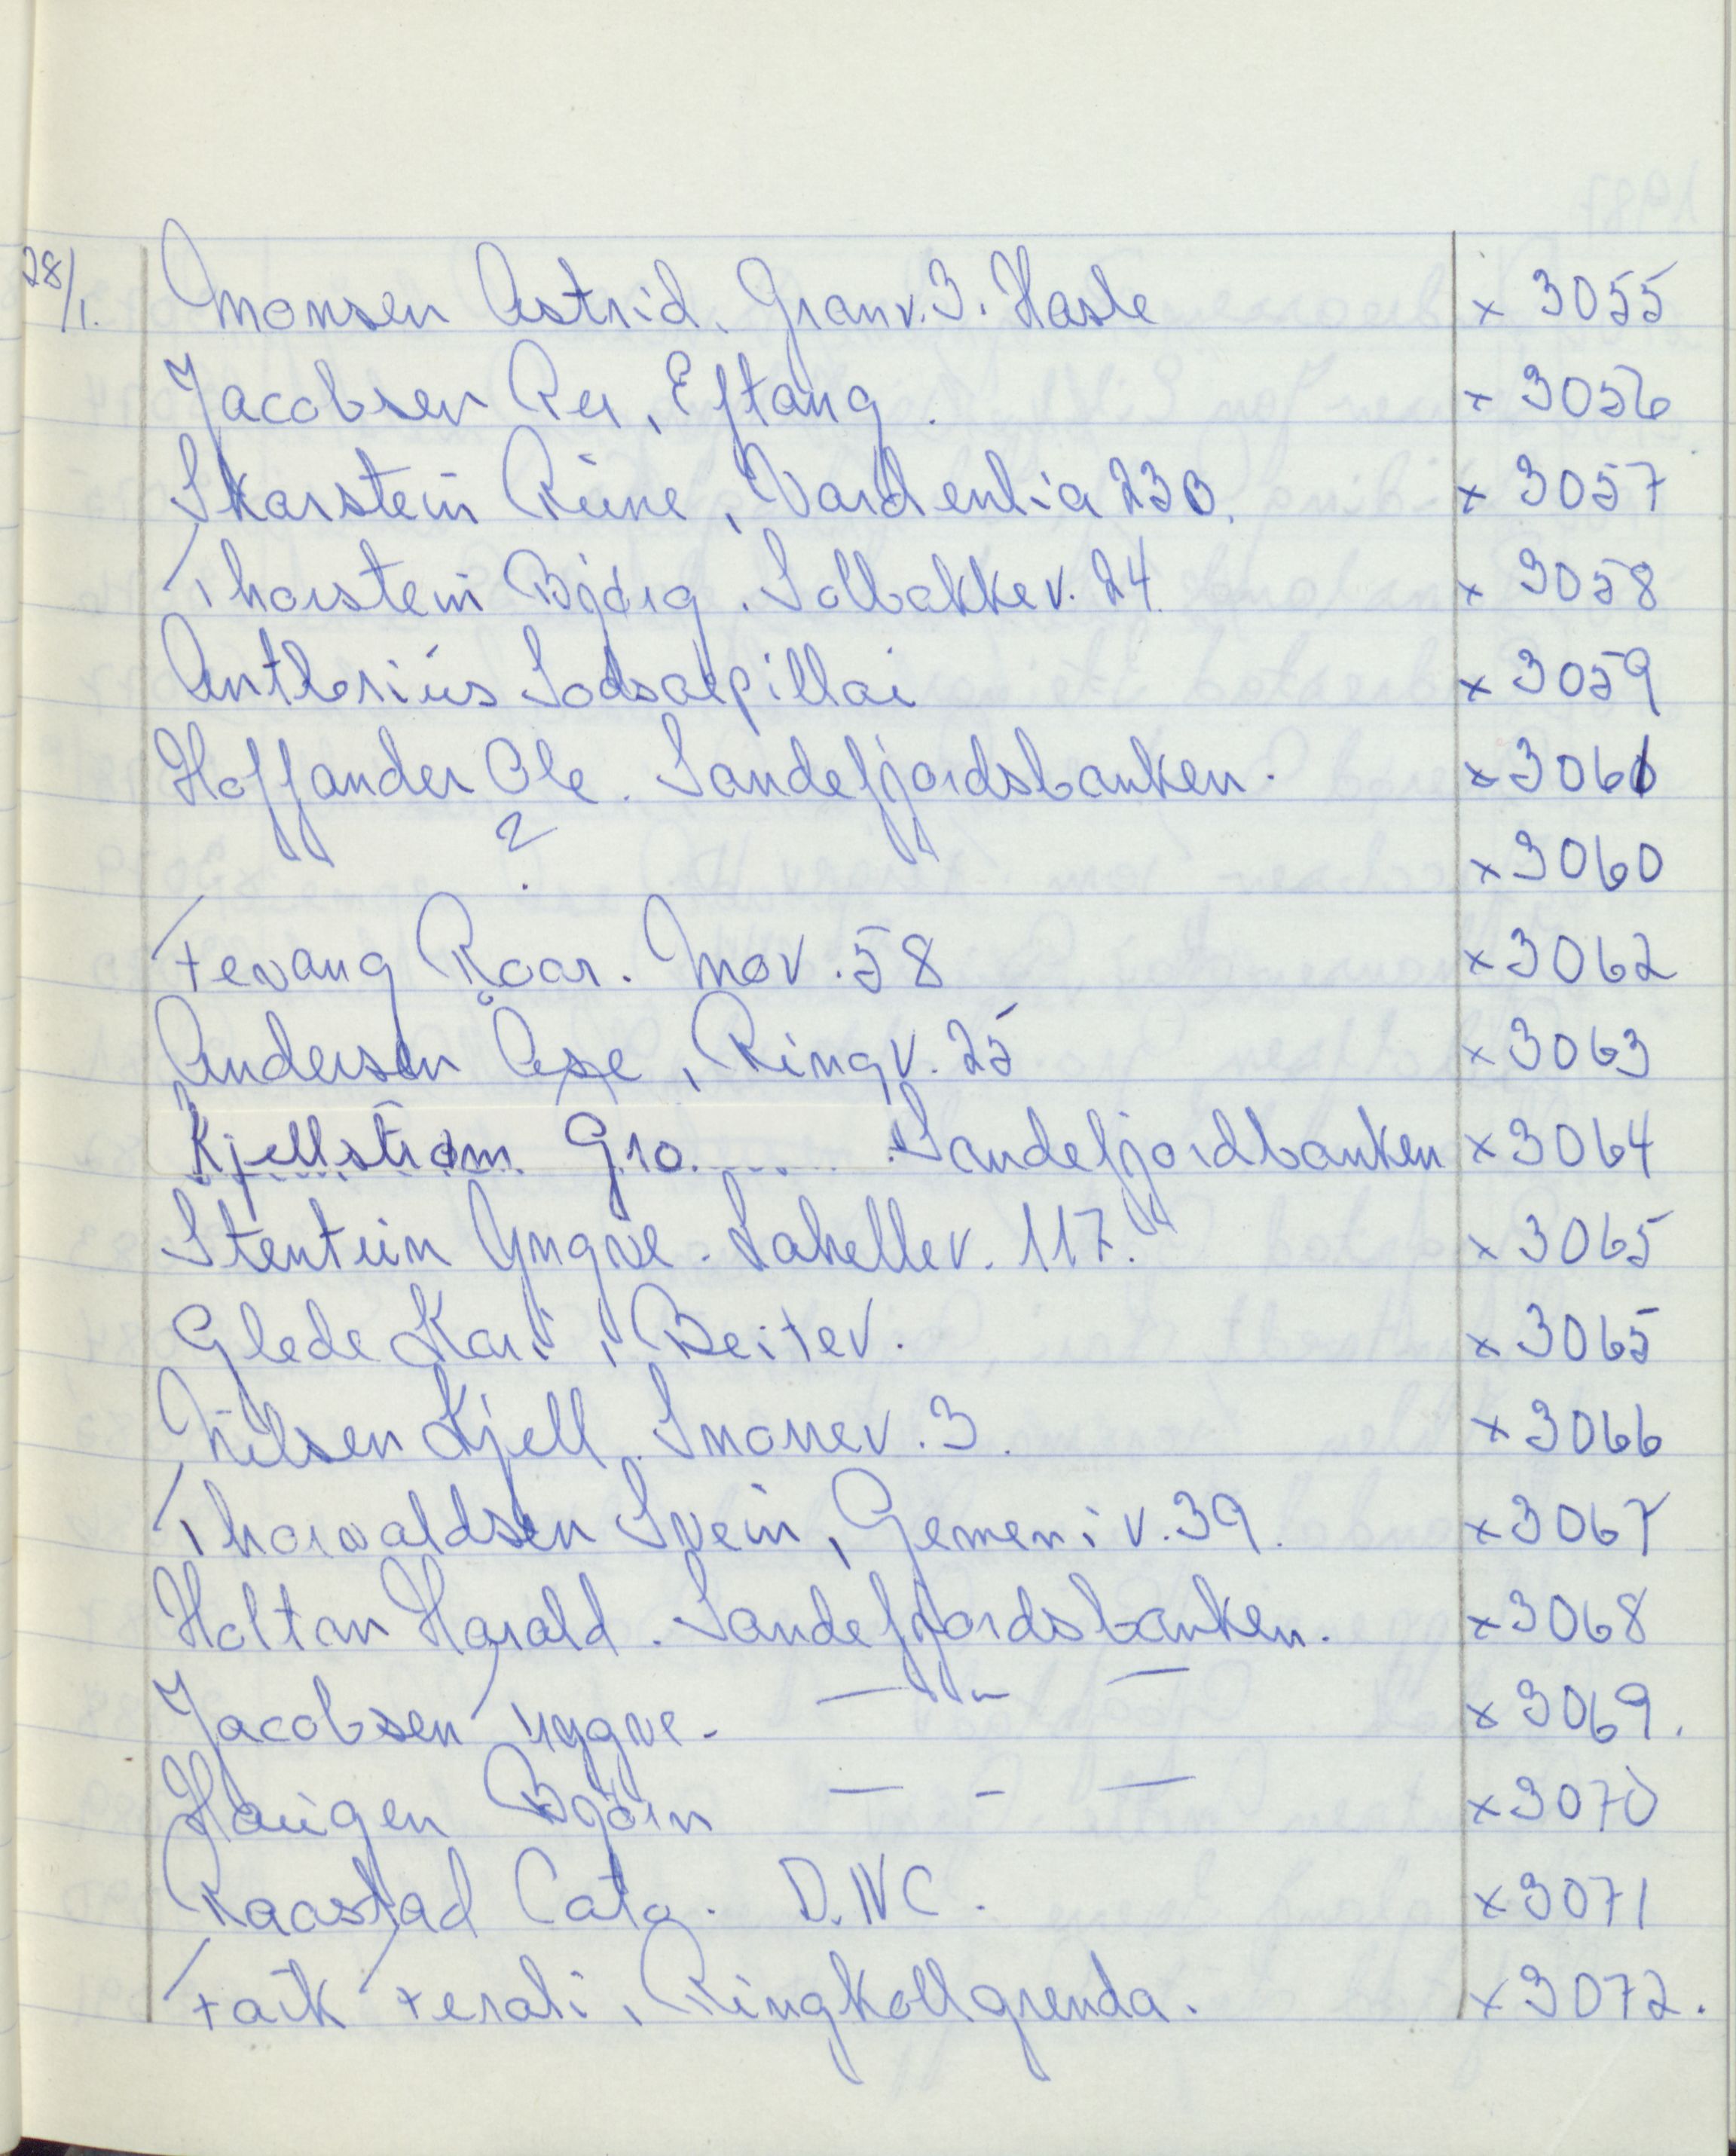 28/1. Monsen Astrid. Granv. 3. Hasle x 3055
Jacobsen Per, Eftang. x 3056
Skarstein Rune, Vardenlia 23B. x 3057
Thorstein Bjørg. Solbakkev. 24. x 3058
Anthoniùs x 3059
Hoffander Ole. Sandefjordsbanken. x 3061
? x 3060
Fevang Roar. Mov. 58 x 3062
Andersen Åse, Ringv. 25 x 3063
Kjellstrøm Gro. Sandefjordbanken x 3064
Yngve. Lahellev. 117. x 3065
Glede Kari, Beitev. x 3065
Nilsen Kjell. Snorrev. 3. x 3066
Thorvaldsen Svein, Gemeniv. 39. x 3067
Holtan Harald. Sandefjordsbanken. x 3068
Jacobsen Yngve. — " — x 3069.
Haugen Bjørn — - — x 3070
Raastad Cato. D.N.C. x 3071
Faik Ferati, Ringkollgrenda. x 3072.